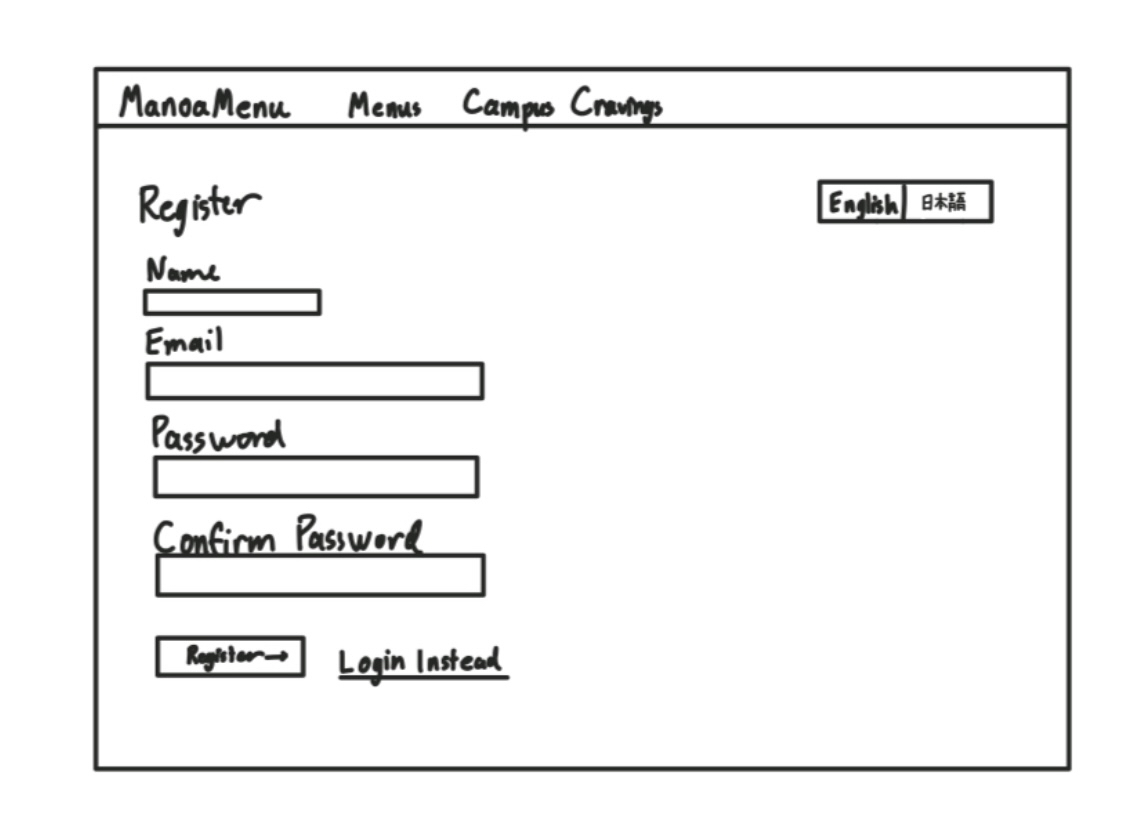 ManoaMenu Menus Campus Cravings
Register
English 日本語
Name
Email
Password
Confirm Password
Register→ Login Instead